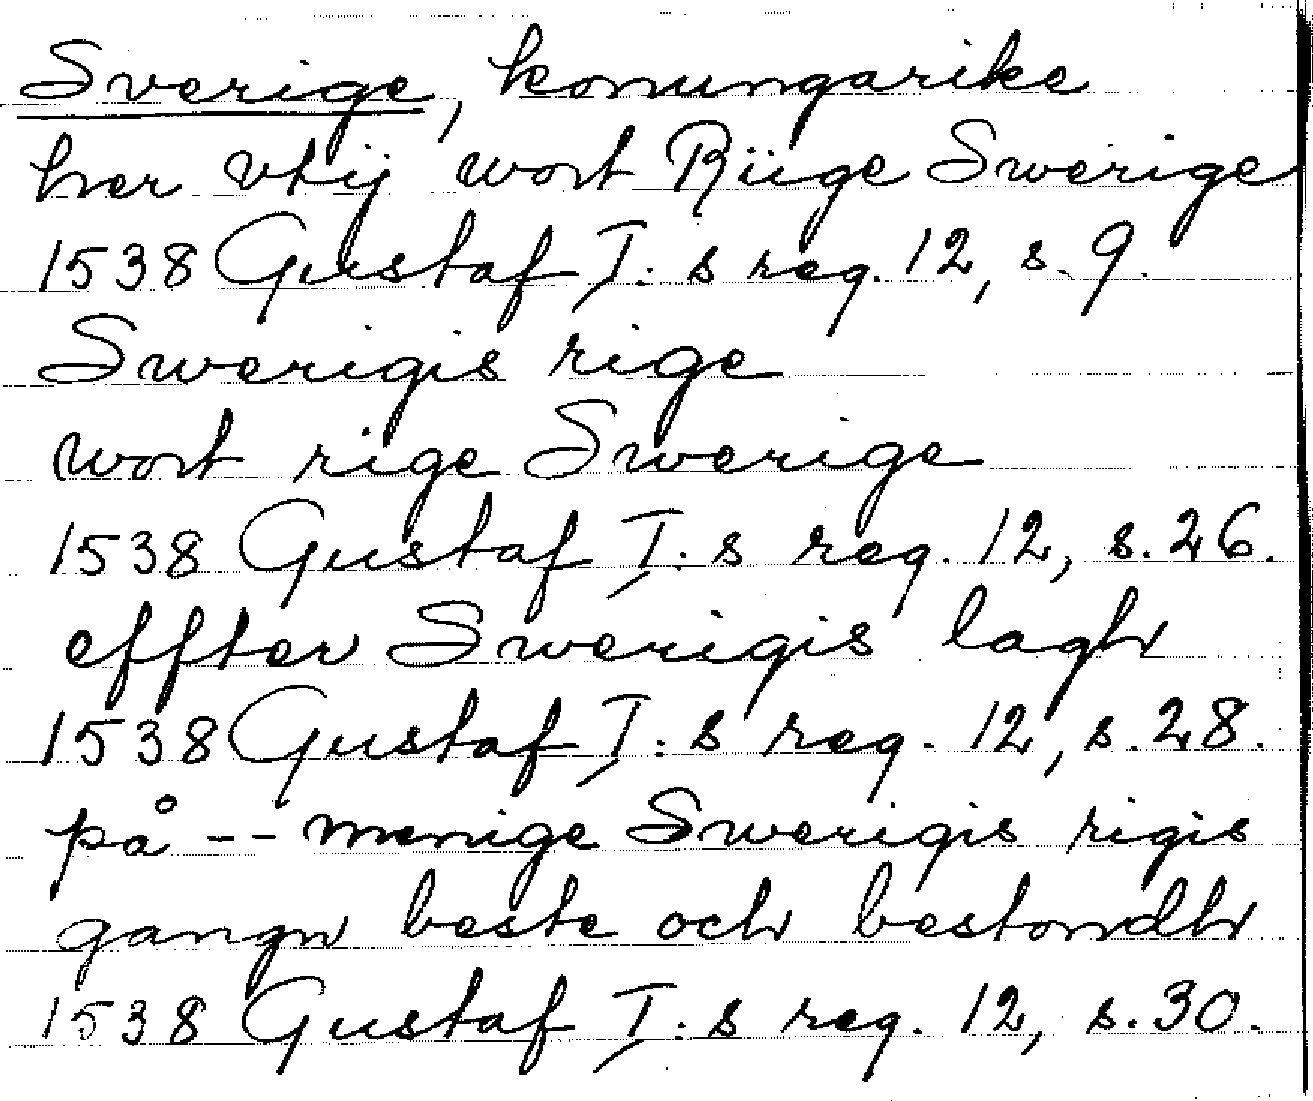 Sverige, konungarike
her vtij wort Rüge Swerige
1538 Gustaf I:s reg. 12, s. 9.
Swerigis rige
wort rige Swerige
1538 Gustaf I:s reg. 12, s. 26.
effter Swerigis lagh
1538 Gustaf I:s reg. 12, s. 28.
på -- menige Swerigis rigis
gangn beste och bestondh
1538 Gustaf I:s reg. 12, s. 30.